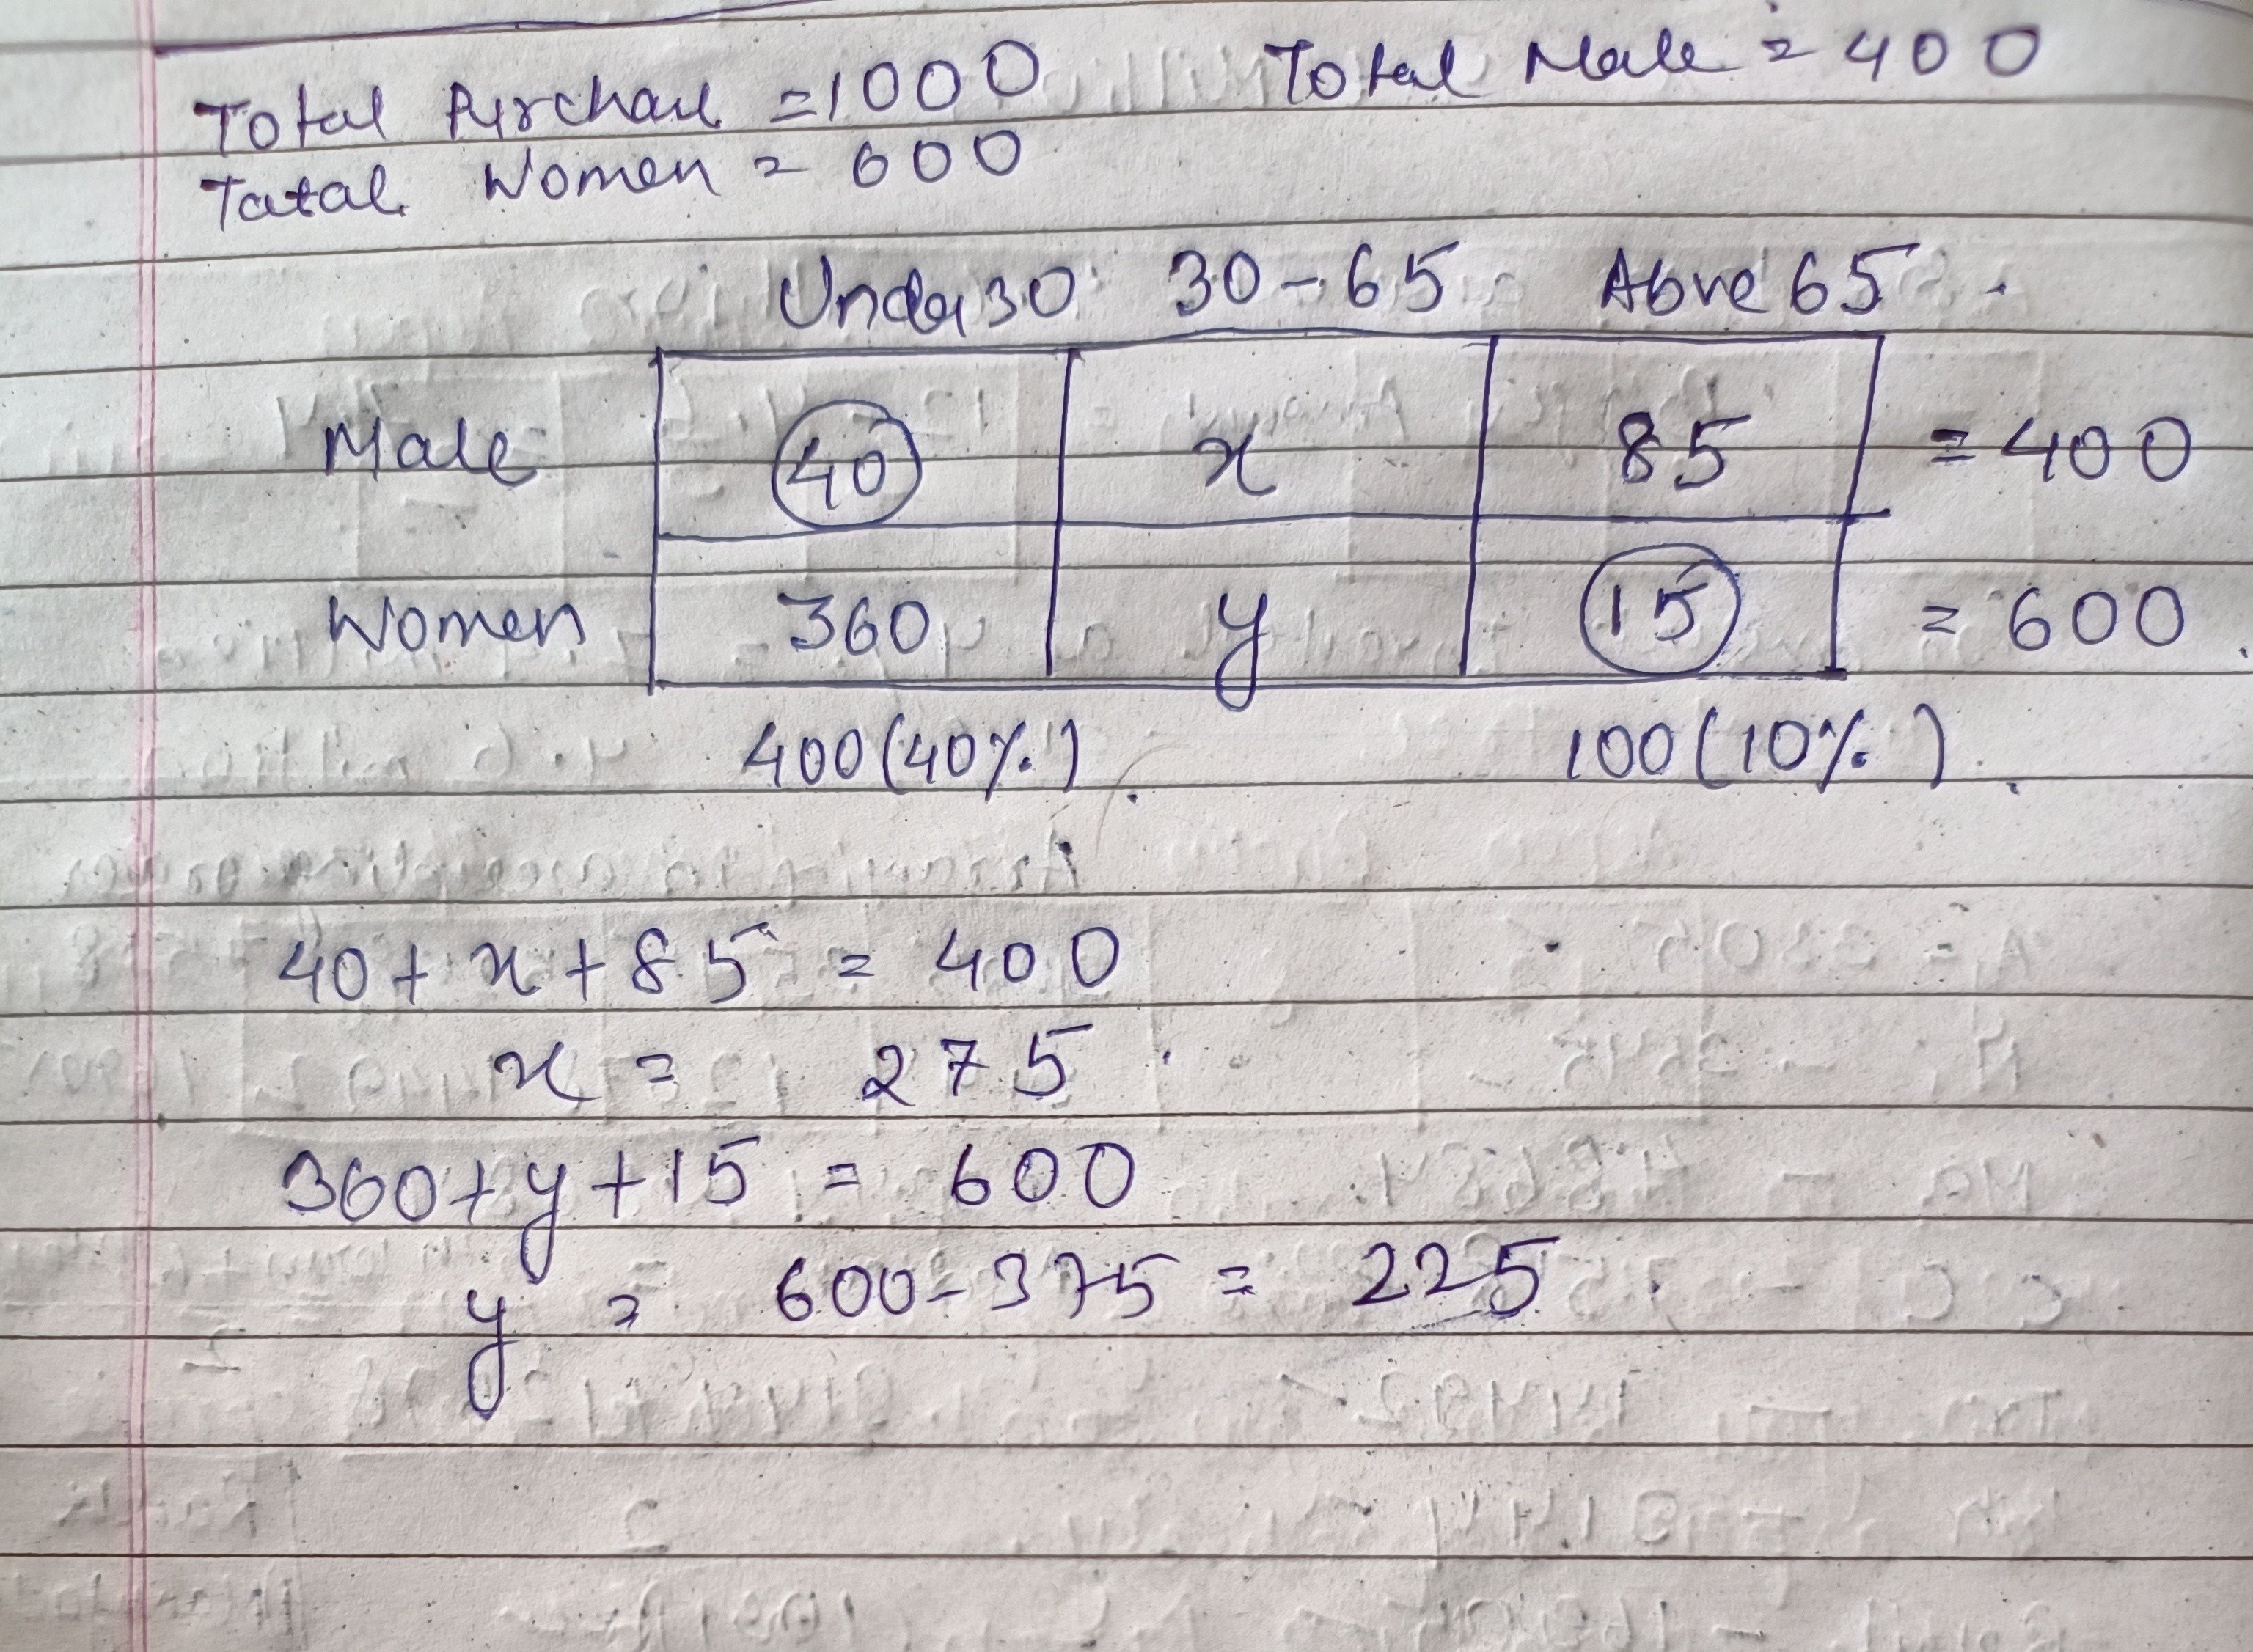 Total Purchase = 1000 Total Male = 400
Tatal Women = 600
Under 30 30-65 Above 65
Male 40 x 85 = 400
Women 360 y 15 = 600
400(40%) 100(10%)
40 + x + 85 = 400
x = 275
360 + y + 15 = 600
y = 600 - 375 = 225